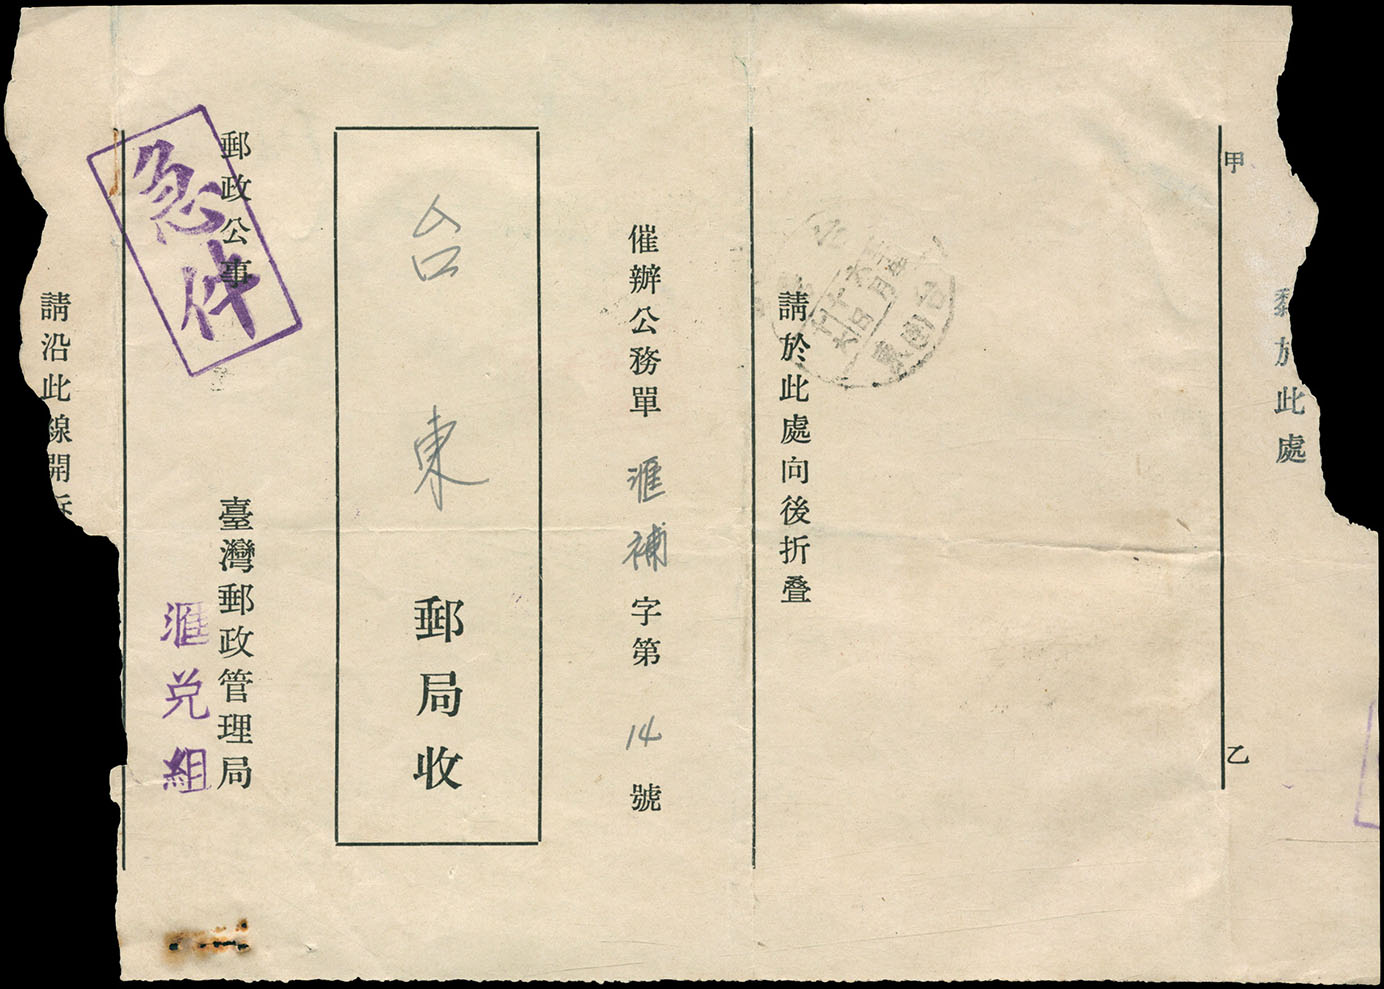 甲 乙
黏於此處
請於此處向後折疊
催辦公務單 滙補字第14號
台東郵局收
郵政公事 臺灣郵政管理局
急件
滙兌組
請沿此線開拆